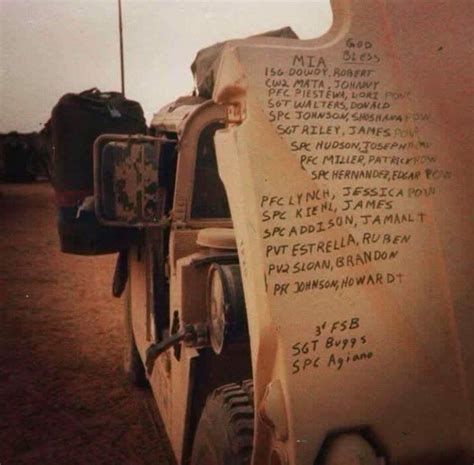 GOD
BLESS
MIA
1SG DOWDY, ROBERT
CW2 MATA, JOHNNY
PFC PIESTEWA, LORI POW
SGT WALTERS, DONALD
SPC JOHNSON, SHOSHANA POW
SGT RILEY, JAMES POW
SPC HUDSON, JOSEPH POW
PFC MILLER, PATRICK POW
SPC HERNANDEZ, EDGAR POW
PFC LYNCH, JESSICA POW
SPC KIEHL, JAMES
SPC ADDISON, JAMAAL †
PVT ESTRELLA, RUBEN
PV2 SLOAN, BRANDON
PFC JOHNSON, HOWARD †
3d FSB
SGT Buggs
SPC Agiano